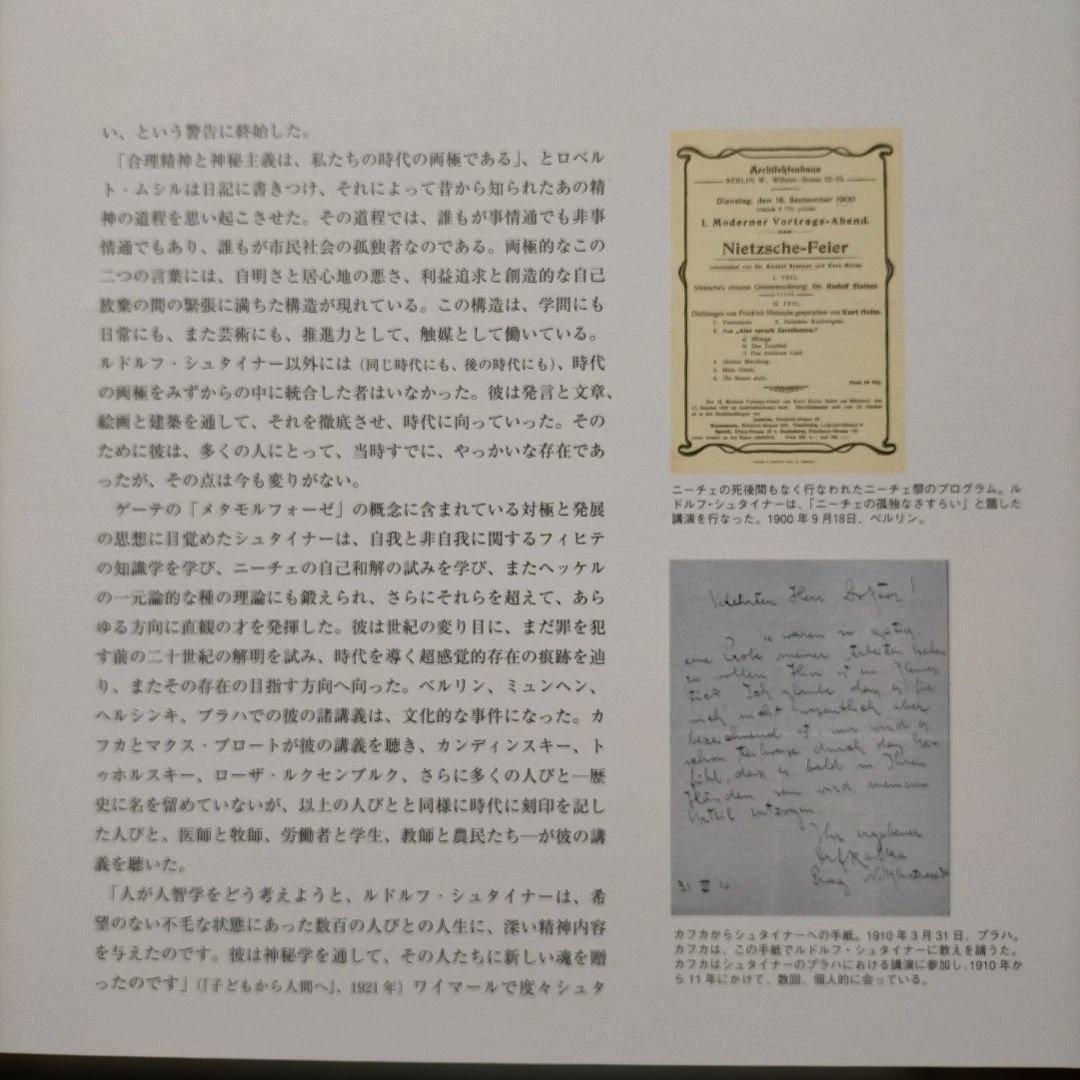 い、という警告に終始した。
「合理精神と神秘主義は、私たちの時代の両極である」、とロベル
ト・ムシルは日記に書きつけ、それによって昔から知られたあの精
神の道程を思い起こさせた。その道程では、誰もが事情通でも非事
情通でもあり、誰もが市民社会の孤独者なのである。両極的なこの
二つの言葉には、自明さと居心地の悪さ、利益追求と創造的な自己
放棄の間の緊張に満ちた構造が現れている。この構造は、学問にも
日常にも、また芸術にも、推進力として、触媒として働いている。
ルドルフ・シュタイナー以外には（同じ時代にも、後の時代にも）、時代
の両極をみずからの中に統合した者はいなかった。彼は発言と文章、
絵画と建築を通して、それを徹底させ、時代に向っていった。その
ために彼は、多くの人にとって、当時すでに、やっかいな存在であ
ったが、その点は今も変りがない。
ゲーテの「メタモルフォーゼ」の概念に含まれている対極と発展
の思想に目覚めたシュタイナーは、自我と非自我に関するフィヒテ
の知識学を学び、ニーチェの自己和解の試みを学び、またヘッケル
の一元論的な種の理論にも鍛えられ、さらにそれらを超えて、あら
ゆる方向に直観の才を発揮した。彼は世紀の変り目に、まだ罪を犯
す前の二十世紀の解明を試み、時代を導く超感覚的存在の痕跡を辿
り、またその存在の目指す方向へ向った。ベルリン、ミュンヘン、
ヘルシンキ、プラハでの彼の諸講義は、文化的な事件になった。カ
フカとマクス・ブロートが彼の講義を聴き、カンディンスキー、ト
ゥホルスキー、ローザ・ルクセンブルク、さらに多くの人びと―歴
史に名を留めていないが、以上の人びとと同様に時代に刻印を記し
た人びと、医師と牧師、労働者と学生、教師と農民たち―が彼の講
義を聴いた。
「人が人智学をどう考えようと、ルドルフ・シュタイナーは、希
望のない不毛な状態にあった数百の人びとの人生に、深い精神内容
を与えたのです。彼は神秘学を通して、その人たちに新しい魂を贈
ったのです」（『子どもから人間へ』、1921年）ワイマールで度々シュタ
Architektenhaus
BERLIN W., Wilhelm-Strasse 92-93.
Dienstag, den 18. September 1900
I. Moderner Vortrags-Abend.
Nietzsche-Feier
veranstaltet von Dr. Rudolf Steiner und Kurt Holm.
I. TEIL.
Dr. Rudolf Steiner.
II. TEIL.
Dichtungen von Friedrich Nietzsche gesprochen von Kurt Holm.
ニーチェの死後間もなく行なわれたニーチェ祭のプログラム。ル
ドルフ・シュタイナーは、「ニーチェの孤独なさすらい」と題した
講演を行なった。1900年9月18日、ベルリン。
Herr Doktor!
Ihr ergebener
31 III 10
カフカからシュタイナーへの手紙。1910年3月31日、プラハ。
カフカは、この手紙でルドルフ・シュタイナーに教えを請うた。
カフカはシュタイナーのプラハにおける講演に参加し、1910年か
ら11年にかけて、数回、個人的に会っている。